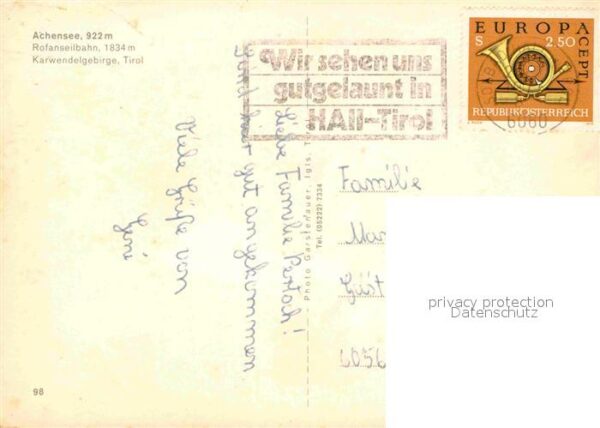 Achensee, 922 m
Rofanseilbahn, 1834 m
Karwendelgebirge, Tirol
Wir sehen uns
gutgelaunt in
HAll-Tirol
EUROPA
CEPT
S 2.50
REPUBLIK ÖSTERREICH
6060
Liebe Familie
gut angekommen
Viele Grüße von
Photo Garstenauer, Igls, T
Tel. (05222) 7334
Familie
Mar
Gäst
6056
privacy protection
Datenschutz
98